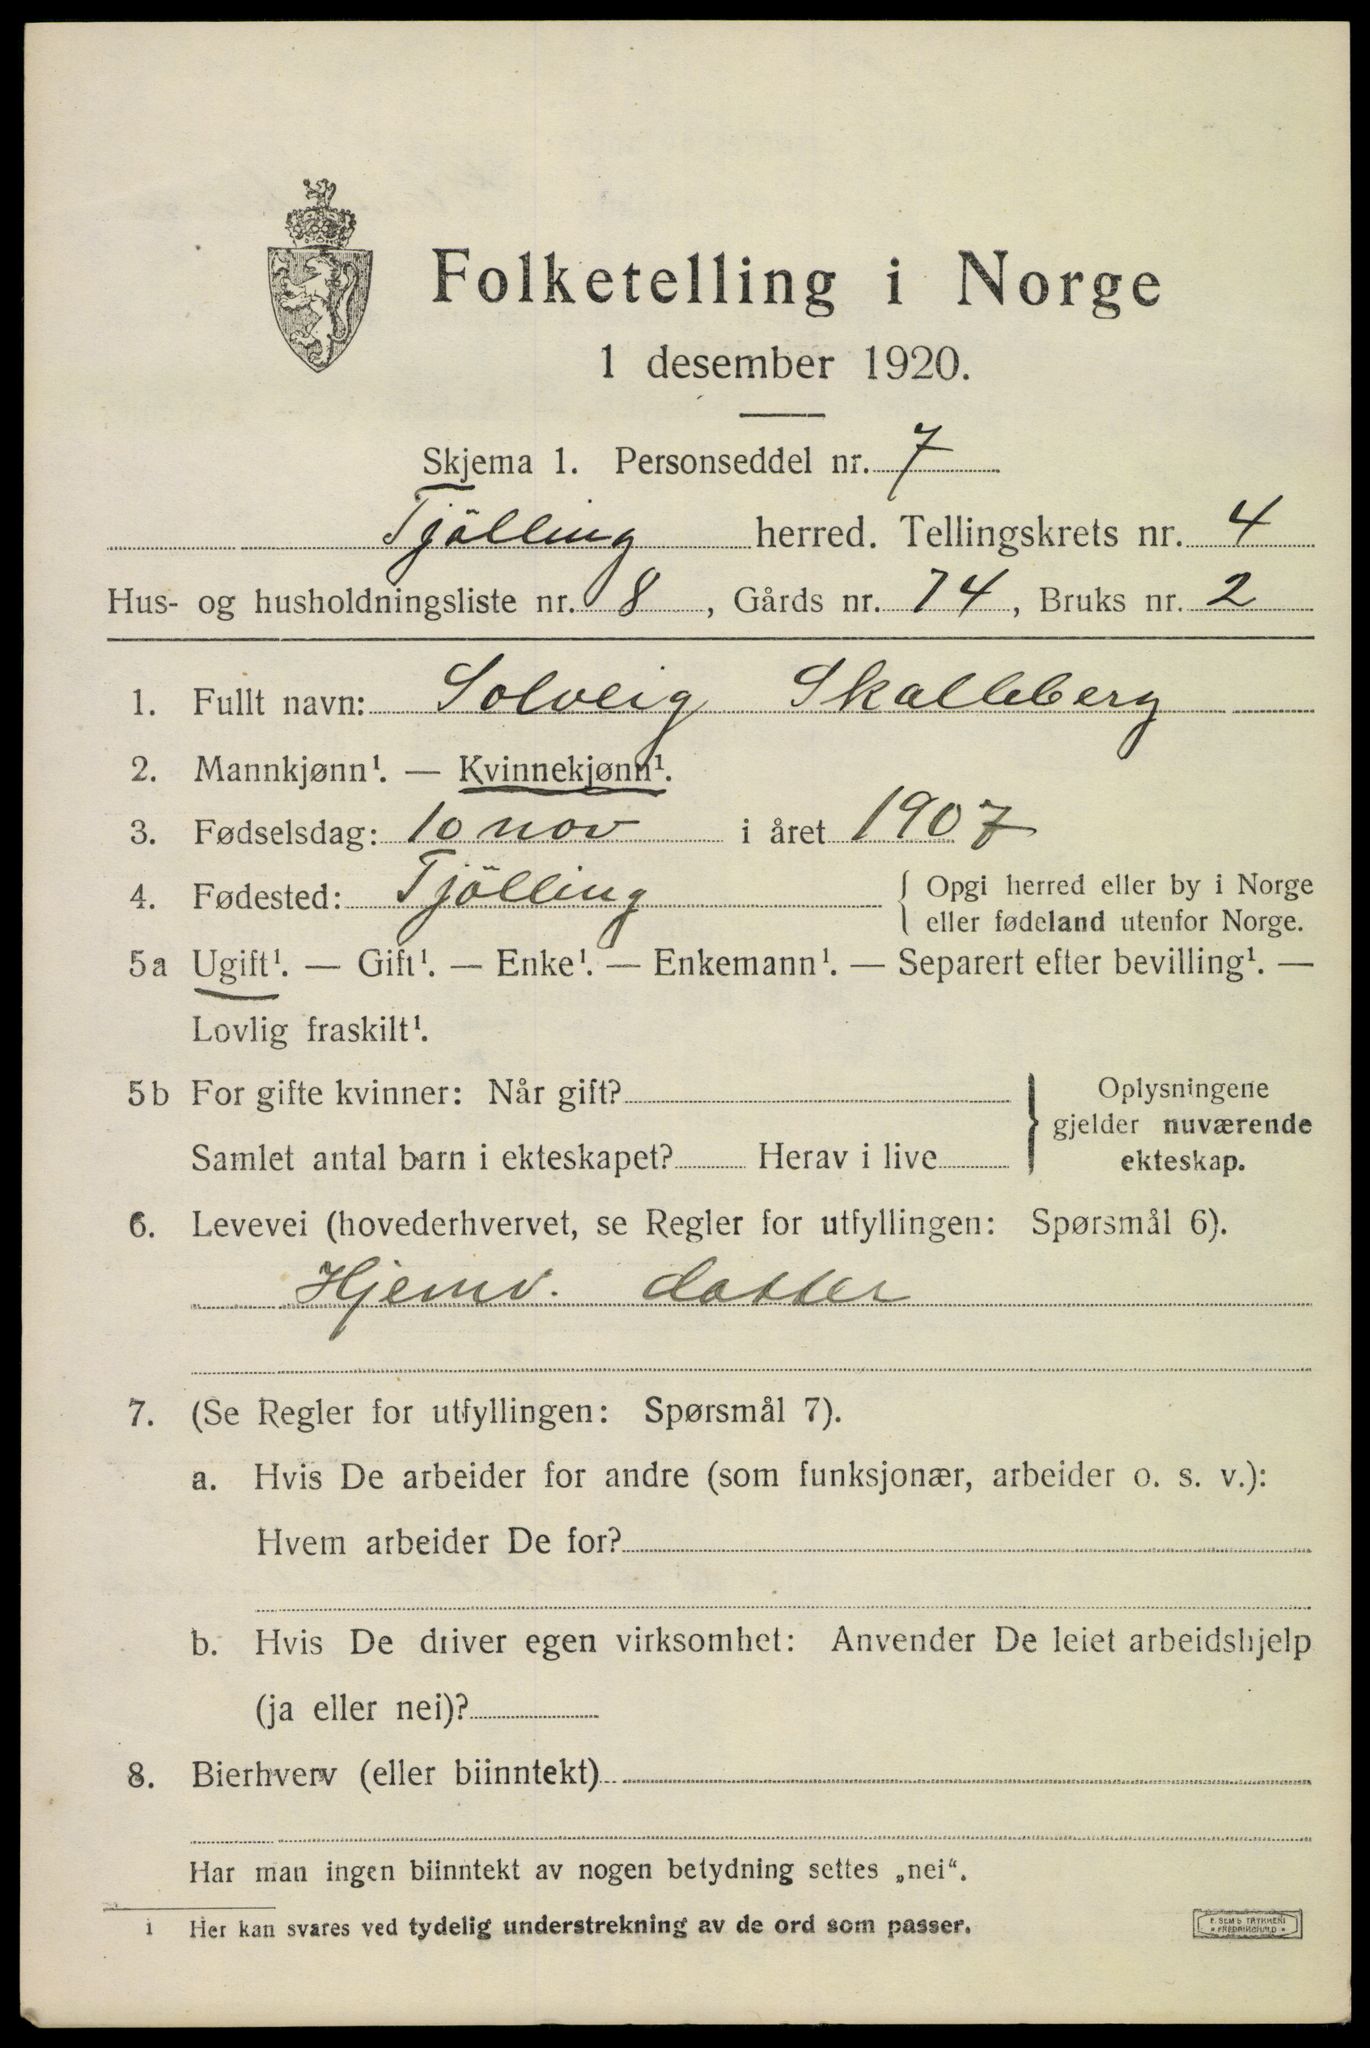 Folketelling i Norge
1 desember 1920.
Skjema 1. Personseddel nr. 7
Tjölling herred. Tellingskrets nr. 4
Hus- og husholdningsliste nr. 8, Gårds nr. 74, Bruks nr. 2
1. Fullt navn: Solveig Skalleberg
2. Mannkjønn¹. — Kvinnekjønn¹.
3. Fødselsdag: 10 nov i året 1907
4. Fødested: Tjölling { Opgi herred eller by i Norge
eller fødeland utenfor Norge.
5a Ugift¹. — Gift¹. — Enke¹. — Enkemann¹. — Separert efter bevilling¹. —
Lovlig fraskilt¹.
5b For gifte kvinner: Når gift?
Samlet antal barn i ekteskapet? Herav i live
} Oplysningene
gjelder nuværende
ekteskap.
6. Levevei (hovederhvervet, se Regler for utfyllingen: Spørsmål 6).
Hjemv. datter
7. (Se Regler for utfyllingen: Spørsmål 7).
a. Hvis De arbeider for andre (som funksjonær, arbeider o. s. v.):
Hvem arbeider De for?
b. Hvis De driver egen virksomhet: Anvender De leiet arbeidshjelp
(ja eller nei)?
8. Bierhverv (eller biinntekt)
Har man ingen biinntekt av nogen betydning settes „nei“.
1 Her kan svares ved tydelig understrekning av de ord som passer.